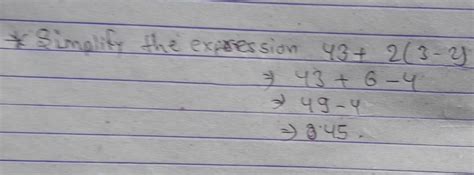 * Simplify the expression 43 + 2(3-2)
⇒ 43 + 6 - 4
⇒ 49 - 4
⇒ 45.